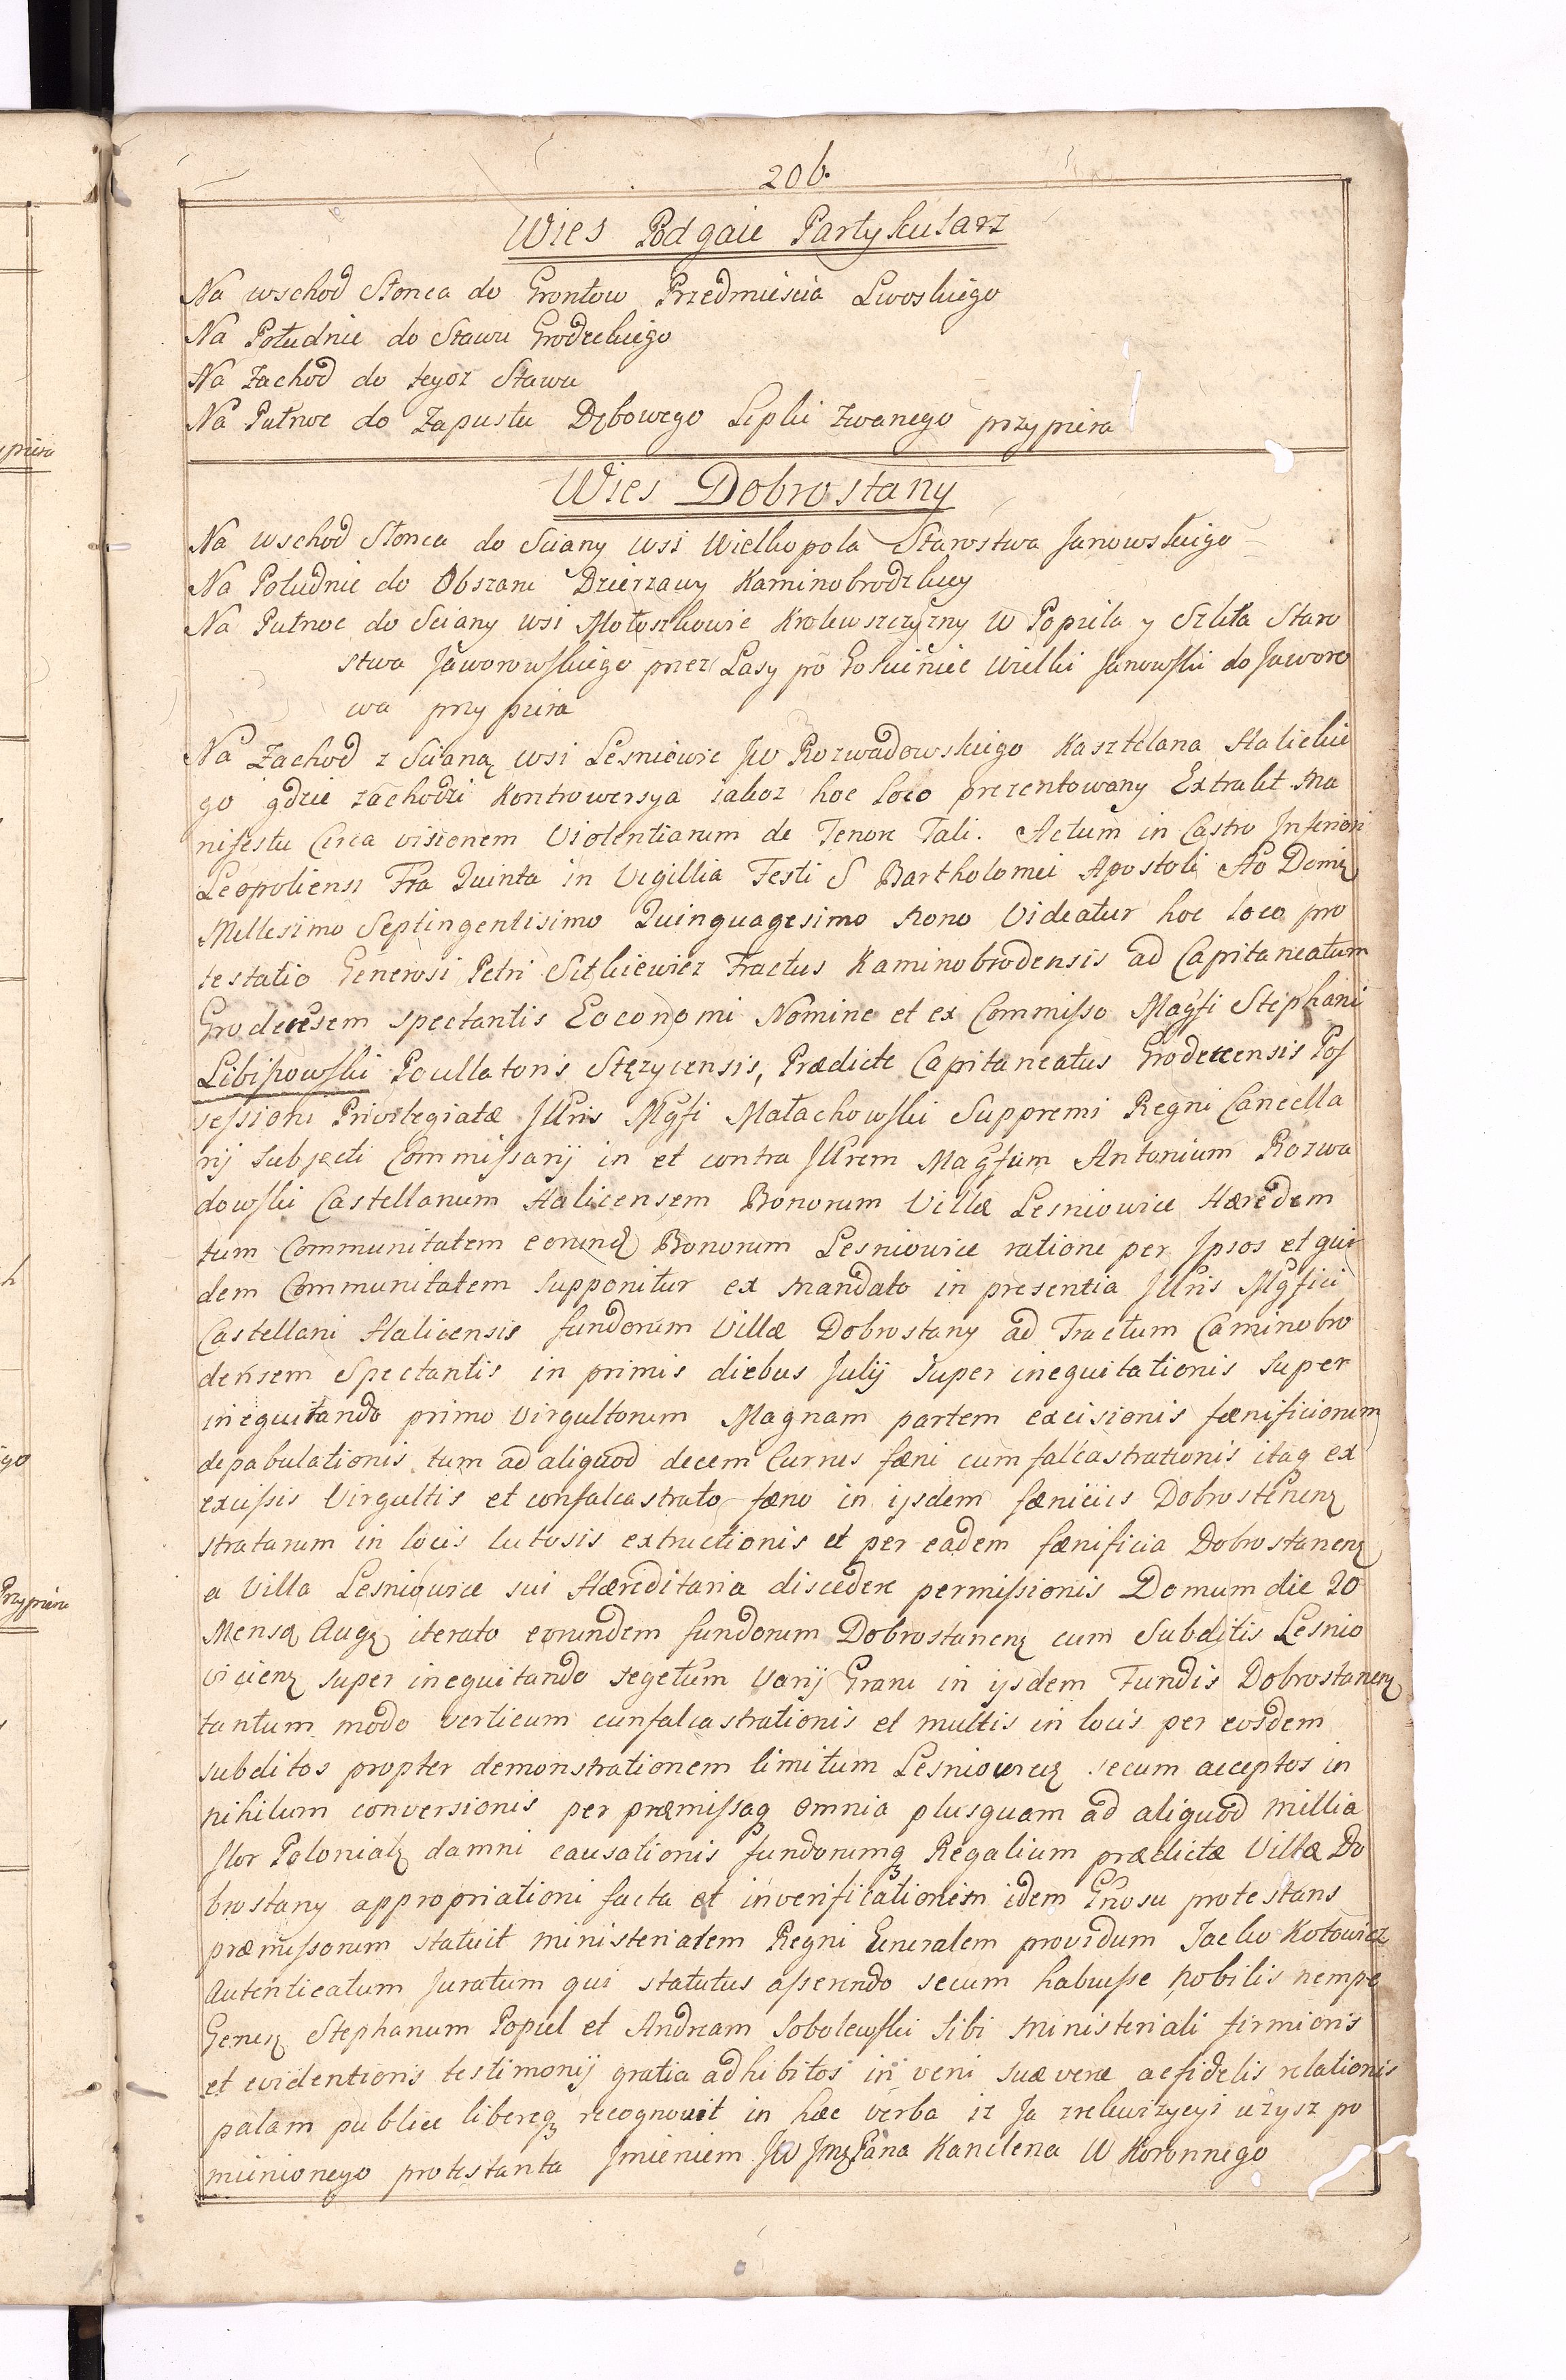 206.
Wies Podgaie Partykularz
Na wschod Słonca do Grontow Przedmiescia Lwoskiego
Na Południe do Stawu Grodeckiego
Na Zachod do tegoz Stawu
Na Pułnoc do Zapustu Dębowego Lipki zwanego przypiera
Wies Dobrostany
Na wschod Słonca do Sciany wsi Wielkopola Starostwa Janowskiego
Na Południe do Obszaru Dzierzawy Kaminobrodzkiey
Na Pułnoc do Sciany wsi Mołoszkowic Krolewszczyzny W Popiela y Szkła Staro
stwa Jaworowskiego przez Lasy po Gosciniec Wielki Janowski do Jaworo
wa przypiera
Na Zachod z Scianą wsi Lesniowic JW Rozwadowskiego Kasztelana Halickie
go gdzie zachodzi Kontrowersya iakoz hoc loco prezentowany Extrakt Ma
nifestu Circa visionem Violentiarum de Tenore Tali. Actum in Castro Inferiori
Leopoliensi Fra Quinta in Vigillia Festi S Bartholomei Apostoli Ao Domi
Millesimo Septingentisimo Quinguagesimo Nono Videatur hoc loco pro
testatio Generosi Petri Sitkiewicz Tractus Kaminobrodensis ad Capitaneatum
Grodecesem spectantis Eoconomi Nomine et ex Commisso Magfi Stephani
Libiszowski Pocullatoris Stęzycensis, Prædicte Capitaneatus Grodecensis Pos
sessioni Privilegiatæ Jllris Mgfi Małachowski Suppremi Regni Cancella
rij Subjecti Commissarij in et contra Jllrem Magfum Antonium Rozwa
dowski Castellanum Halicensem Bonorum Villæ Lesniowice Hæredem
tum Communitatem eorunq Bonorum Lesniowice ratione per Jpsos et qui
dem Communitatem supponitur ex mandato in presentia Jllris Mgfici
Castellani Halicensis fundorum Villæ Dobrostany ad Tractum Caminobro
densem Spectantis in primis diebus Julij super ineguitationis super
ineguitando primo Virgultorum Magnam partem excisionis fœnificiorum
depabulationis tum ad aliquod decem Currus fœni cum falcastrationis itaq ex
excissis Virgultis et confalcastrato fœno in ijsdem fœniciis Dobrostenen
stratarum in locis lutosis extructionis et per eadem fœnificia Dobrostanen
a Villa Lesniowice sui Hæreditaria discedere permissionis Domum die 20
Mensq Aug iterato eorundem fundorum Dobrostanen cum Subditis Lesnio
vicien super ineguitando segetum Varij Grani in ijsdem Fundis Dobrostanen
tantum modo verticum cunfalcastrationis et multis in locis per eosdem
subditos propter demonstrationem limitum Lesniowicz secum acceptos in
nihilum conversionis per præmissaq omnia plusquam ad aliquod millia
flor Polonial damni causationis fundorumq Regalium prædictæ Villæ Do
brostany appropriationi facta et inverificationem idem Gnosu protestans
præmissorum statuit ministerialem Regni Generalem providum Jacko Kotowicz
Autenticatum Juratum qui statutus asserendo secum habuisse nobilis nempe
Genes Stephanum Popiel et Andream Sobolewski sibi ministeriali firmioris
et evidentioris testimonij gratia adhibitos in veni suæ veræ ac fidelis relationis
palam publice libereq recognovit in hæc verba iz Ja zrekwizycyi uzysz po
mienionego protestanta Jmieniem JW Jm Pana Kanclerza W Koronnego